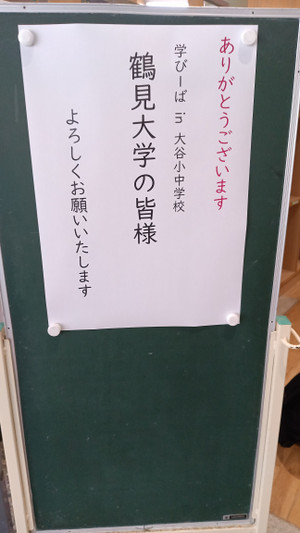 ありがとうございます
学びーば in 大谷小中学校
鶴見大学の皆様
よろしくお願いいたします